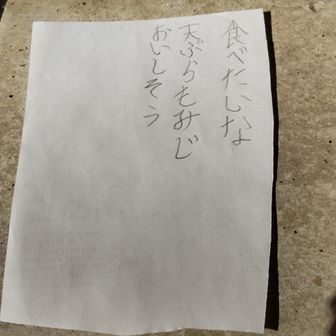 食べたいな
天ぷらもみじ
おいしそう